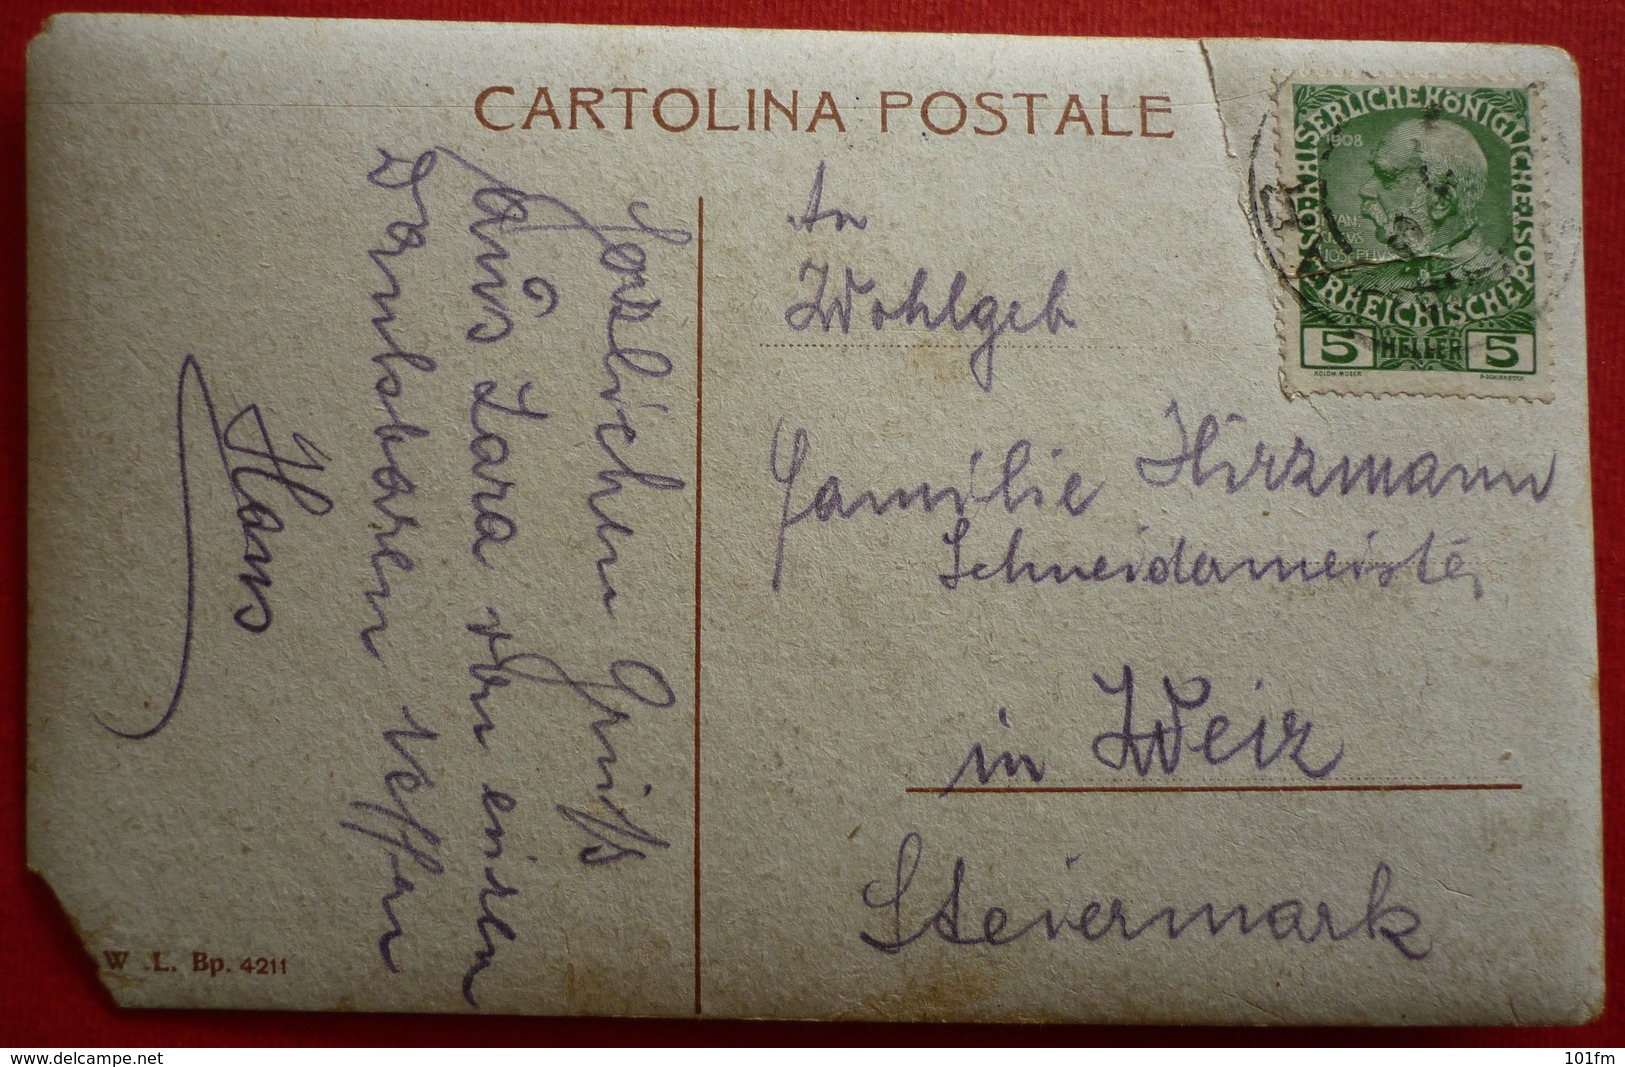 CARTOLINA POSTALE
Herzlichen Gruß
aus Zara von einen
Dankbaren Neffen
Hans
An
Wohlgeb
Familie Hirzmann
Schneidermeister
in Weiz
Steiermark
KAISERLICHE KÖNIGLICHE
ÖSTERREICHISCHE POST
1908
5 HELLER 5
KOLOM. MOSER
F. SCHIRNBÖCK
W .L. Bp. 4211
www.delcampe.net
101fm